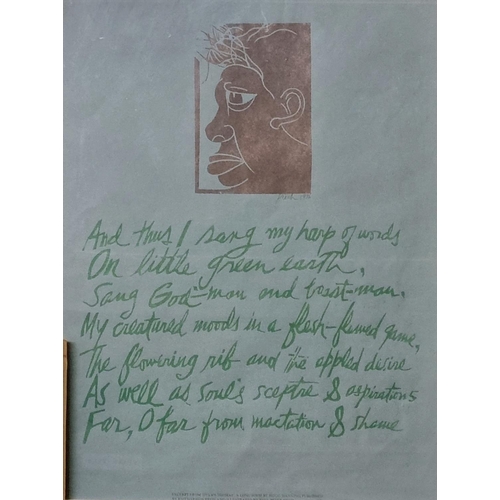 And thus I sang my harp of words
On little green earth,
Sang God-man and beast-man.
My creatured moods in a flesh-flamed game,
The flowering rib and the appled desire
As well as soul's sceptre & aspirations
Far, O far from mactation & shame